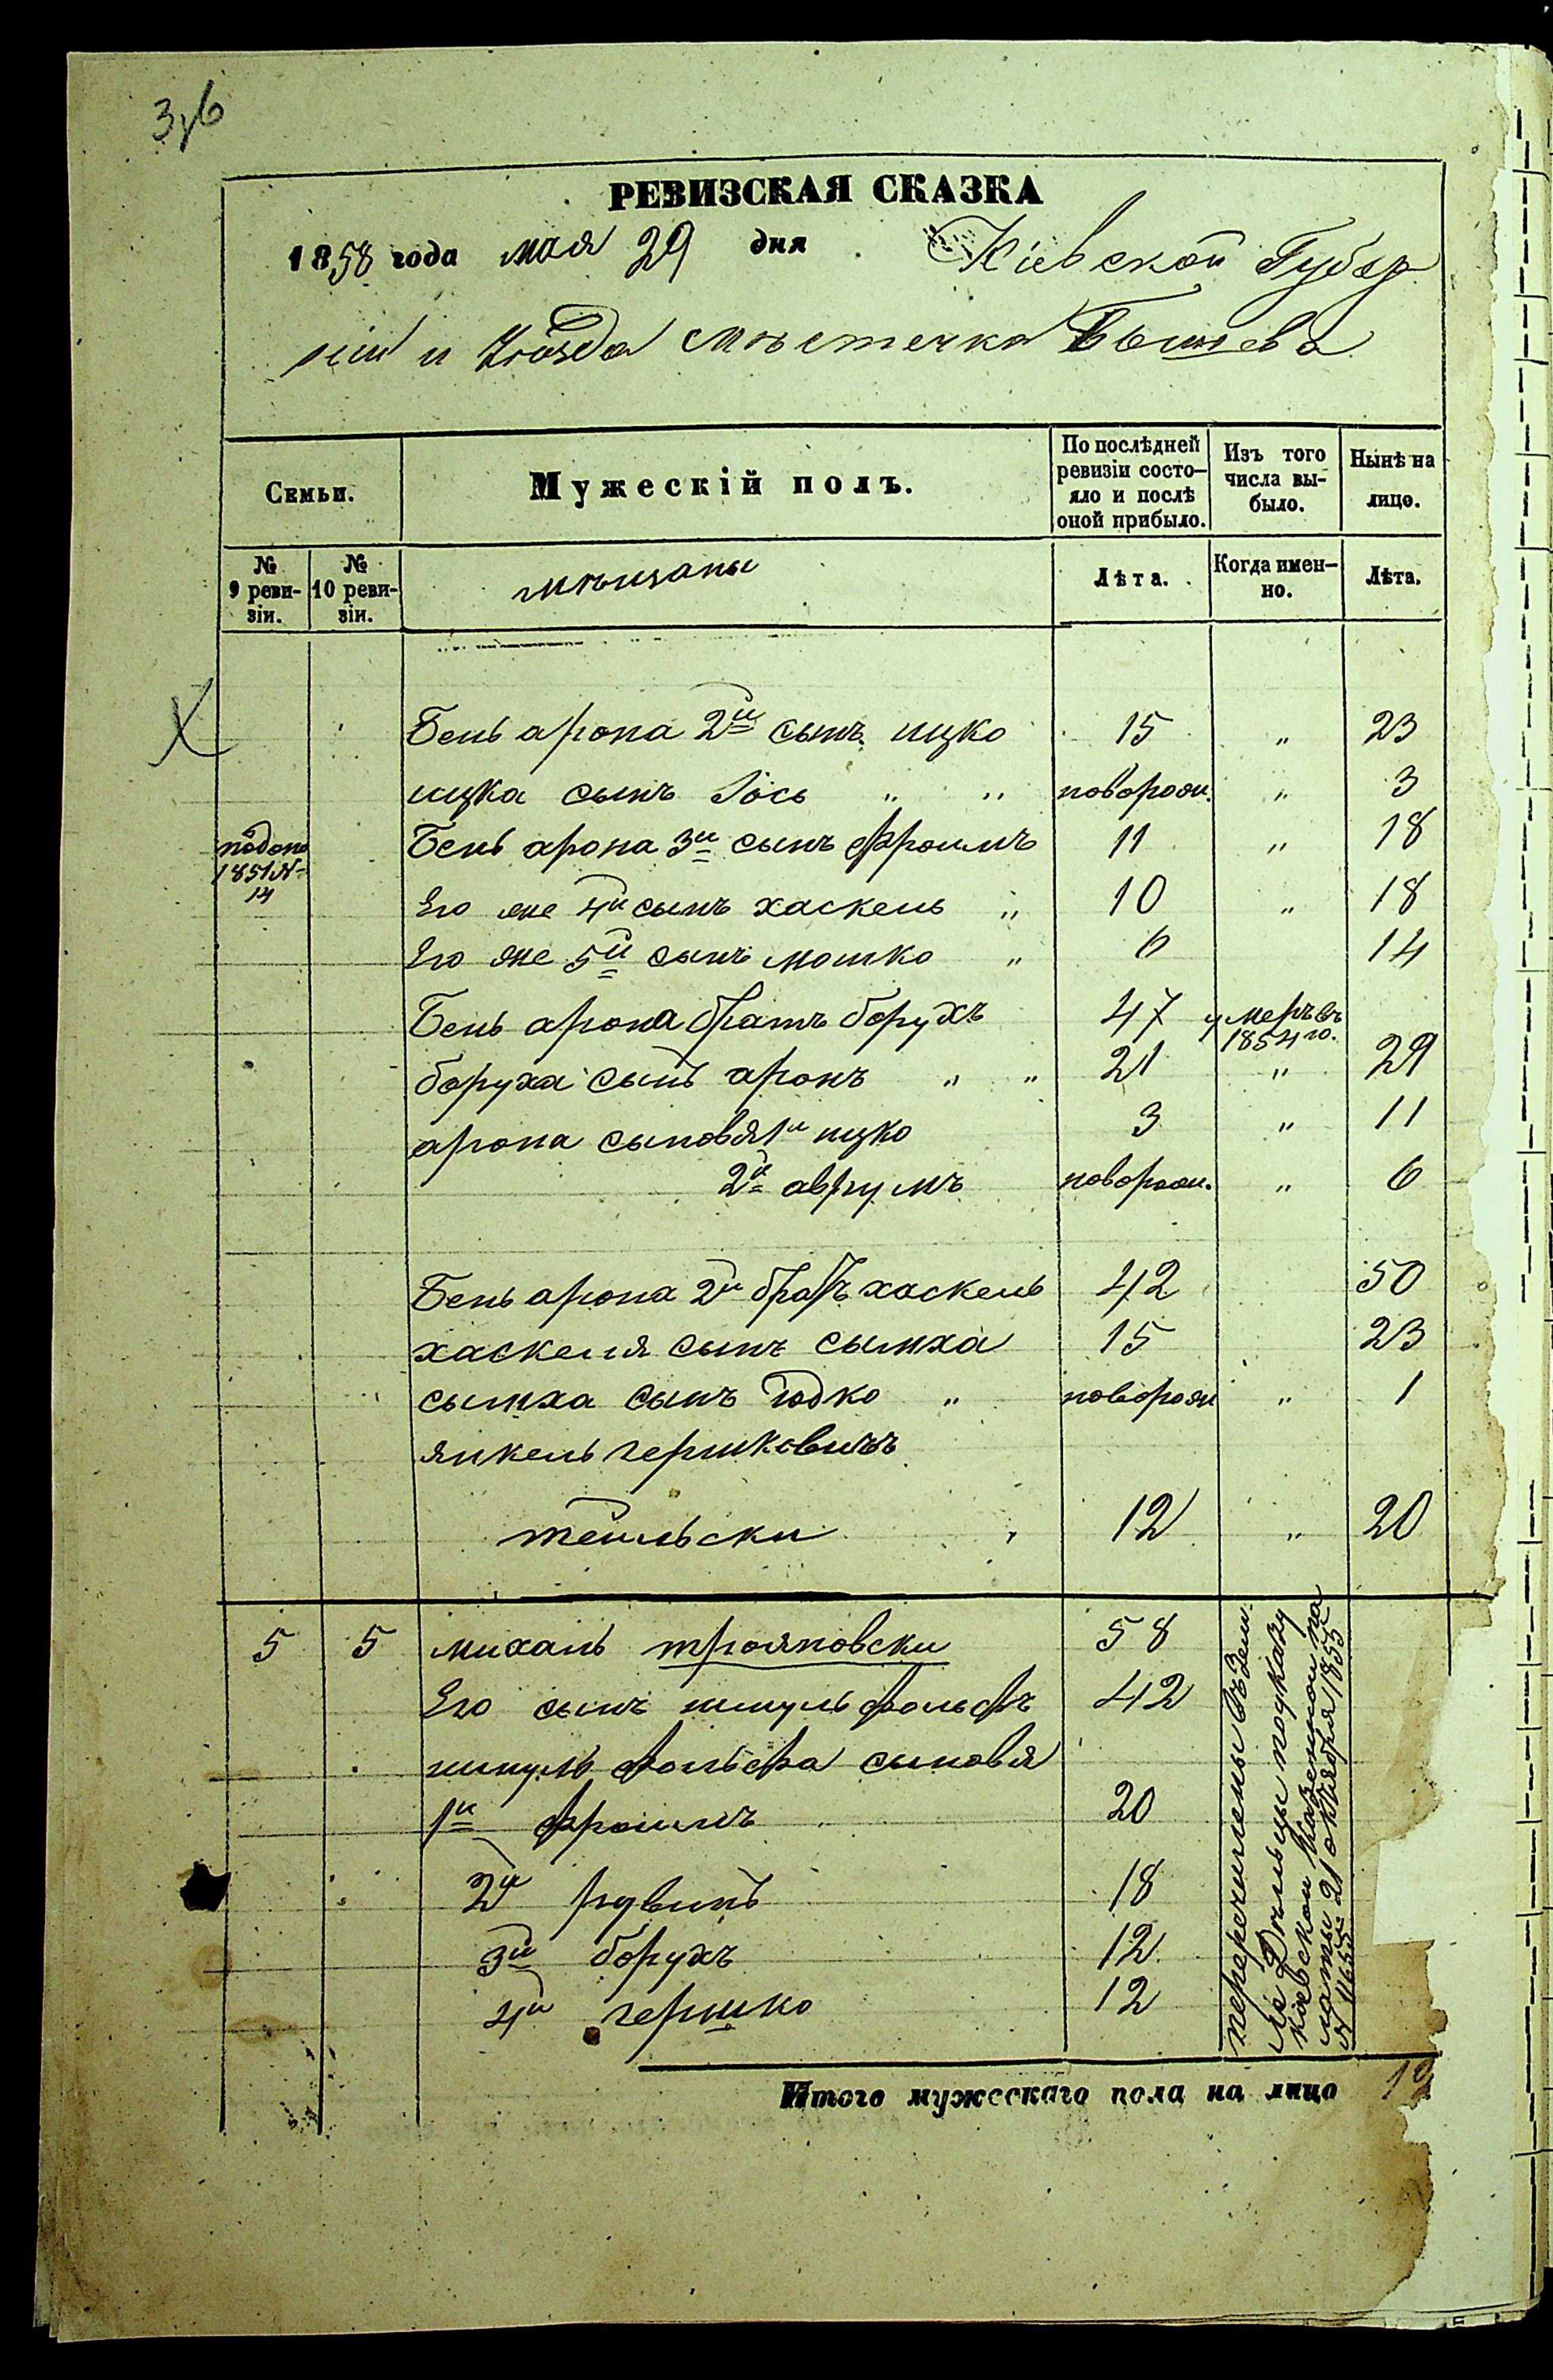 РЕВИЗСКАЯ СКАЗКА
1858 года мая 29 дня Кіевской Губер
ніи и Уѣзда мѣстечка Бышева
Семьи.
Мужескій полъ.
По послѣдней ревизіи состо-
яло и послѣ
оной прибыло.
Изъ того
числа вы-
было.
Нынѣ на
лицо.
№
9 реви-
зіи.
№
10 реви-
зіи.
мѣщаны
Лѣта.
Когда имен-
но.
Лѣта.
Бень арона 2й сынъ ицко 15 " 23
ицка сынъ Іось " " новорож. " 3
1851 №
14
Бень арона 3й сынъ фроимъ 11 " 18
Его же 4й сынъ хаскель " 10 " 18
Его же 5й сынъ мошко " 6 14
Бень арона братъ борухъ 47 умеръ въ
1854 го.
боруха сынъ аронъ " " 21 " 29
арона сыновя 1й ицко 3 " 11
2й аврумъ новорож. " 6
Бень арона 2й братъ хаскель 42 50
хаскеля сынъ сымха 15 23
сымха сынъ юдко " новорож " 1
янкель гершковичъ
тейльски " 12 " 20
5 5 михаль трояновски 58
Его сынъ шмуль фольфъ 42
шмуль фольфа сыновя
1й фроимъ 20
2й рувинъ 18
3й борухъ 12
4й гершко 12
перечислены въ Зем-
ледѣльцы по указу
кіевской Казенной па
латы 21 октября 1855
Итого мужескаго пола на лицо 12